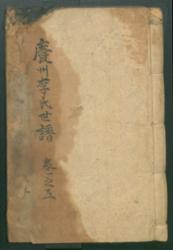 慶州李氏世譜
卷一之五